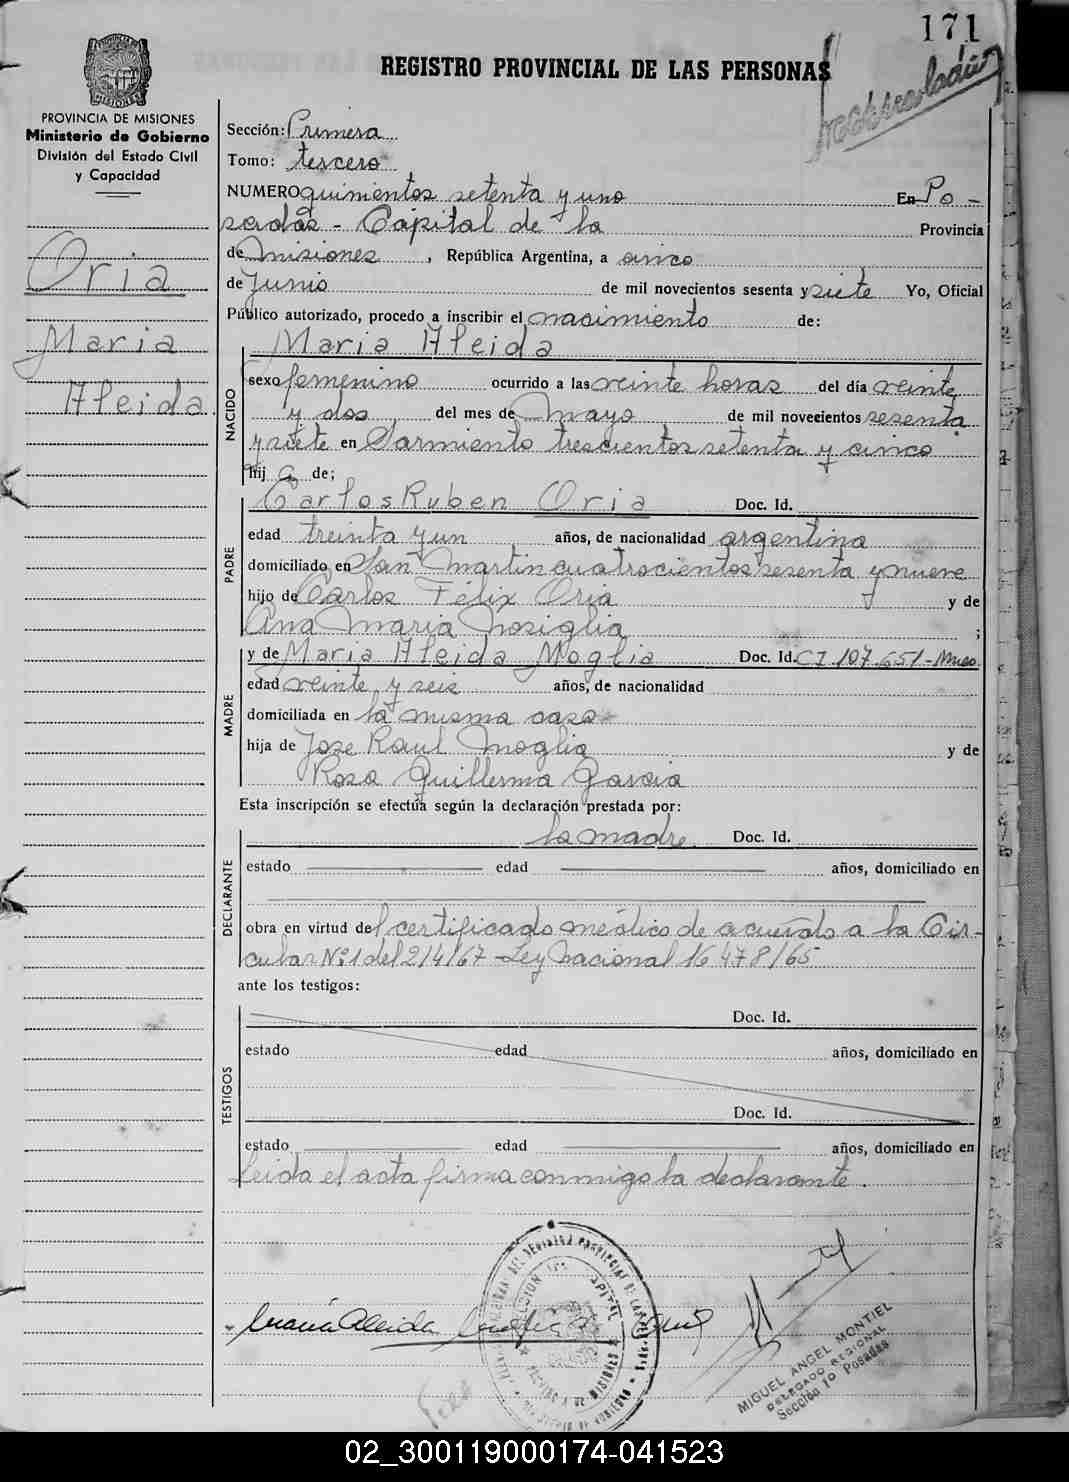 171
REGISTRO PROVINCIAL DE LAS PERSONAS
PROVINCIA DE MISIONES
Ministerio de Gobierno
División del Estado Civil
y Capacidad
Oria
Maria
Aleida
Sección: Primera
Tomo: tercero
NUMERO quinientos setenta y uno En Po-
sadas - Capital de la Provincia
de Misiones, República Argentina, a cinco
de Junio de mil novecientos sesenta y siete Yo, Oficial
Público autorizado, procedo a inscribir el nacimiento de:
Maria Aleida
NACIDO
sexo femenino ocurrido a las veinte horas del día veinte
y dos del mes de Mayo de mil novecientos sesenta
y siete en Sarmiento trescientos setenta y cinco
hij a de;
Carlos Ruben Oria Doc. Id.
PADRE
edad treinta y un años, de nacionalidad argentina
domiciliado en San Martin cuatrocientos sesenta y nueve
hijo de Carlos Félix Oria y de
Ana Maria Nosiglia ;
y de Maria Aleida Moglia Doc. Id. CI 107.651-Mnes
MADRE
edad veinte y seis años, de nacionalidad
domiciliada en la misma casa
hija de Jose Raul Moglia y de
Rosa Guillerma Garcia
Esta inscripción se efectúa según la declaración prestada por:
la madre Doc. Id.
DECLARANTE
estado edad años, domiciliado en
obra en virtud del certificado médico de acuerdo a la Cir-
cular Nº1 del 2/4/67 - Ley Nacional 16478/65
ante los testigos:
Doc. Id.
TESTIGOS
estado edad años, domiciliado en
Doc. Id.
estado edad años, domiciliado en
Leida el acta firma conmigo la declarante.
Maria Aleida Moglia de Oria
MIGUEL ANGEL MONTIEL
DELEGADO REGIONAL
Sección 1º Posadas
02_300119000174-041523